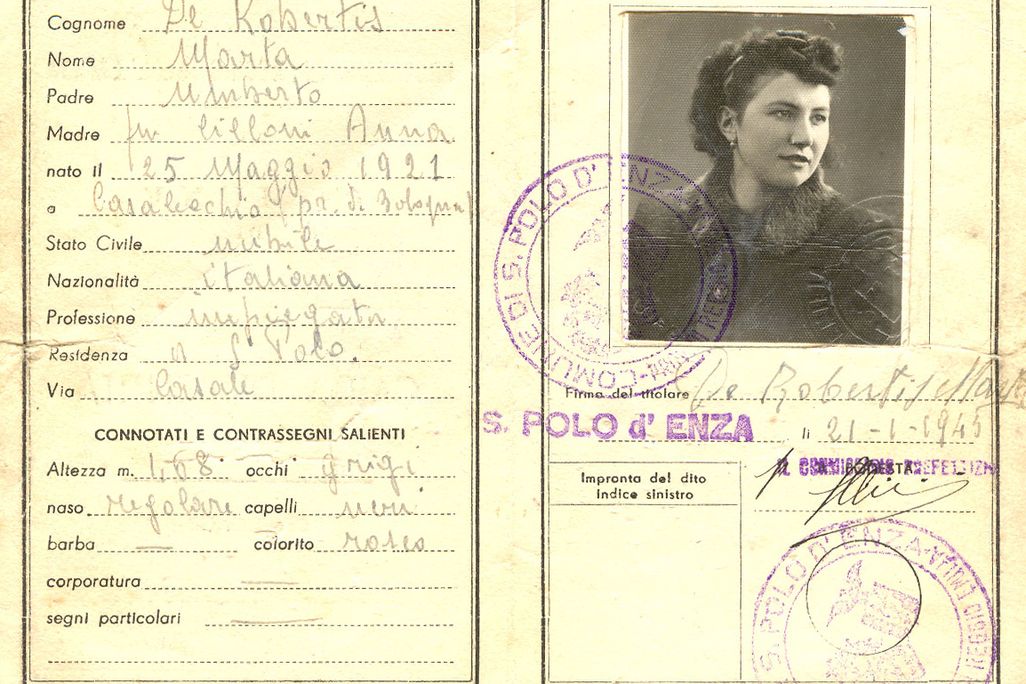 Cognome De Robertis
Nome Marta
Padre Umberto
Madre fu Cilloni Anna
nato Il 25 Maggio 1921
a Casalecchio (pr. di Bologna)
Stato Civile nubile
Nazionalità italiana
Professione impiegata
Residenza a S. Polo.
Via Casale
CONNOTATI E CONTRASSEGNI SALIENTI
Altezza m. 1,68 occhi grigi
naso regolare capelli neri
barba — colorito roseo
corporatura —
segni particolari —
COMUNE DI S. POLO D' ENZA
Firma del titolare De Robertis Marta
S. POLO d' ENZA li 21-1-1945
Impronta del dito
indice sinistro
IL COMMISSARIO PREFETTIZIO
S. POLO D' ENZA